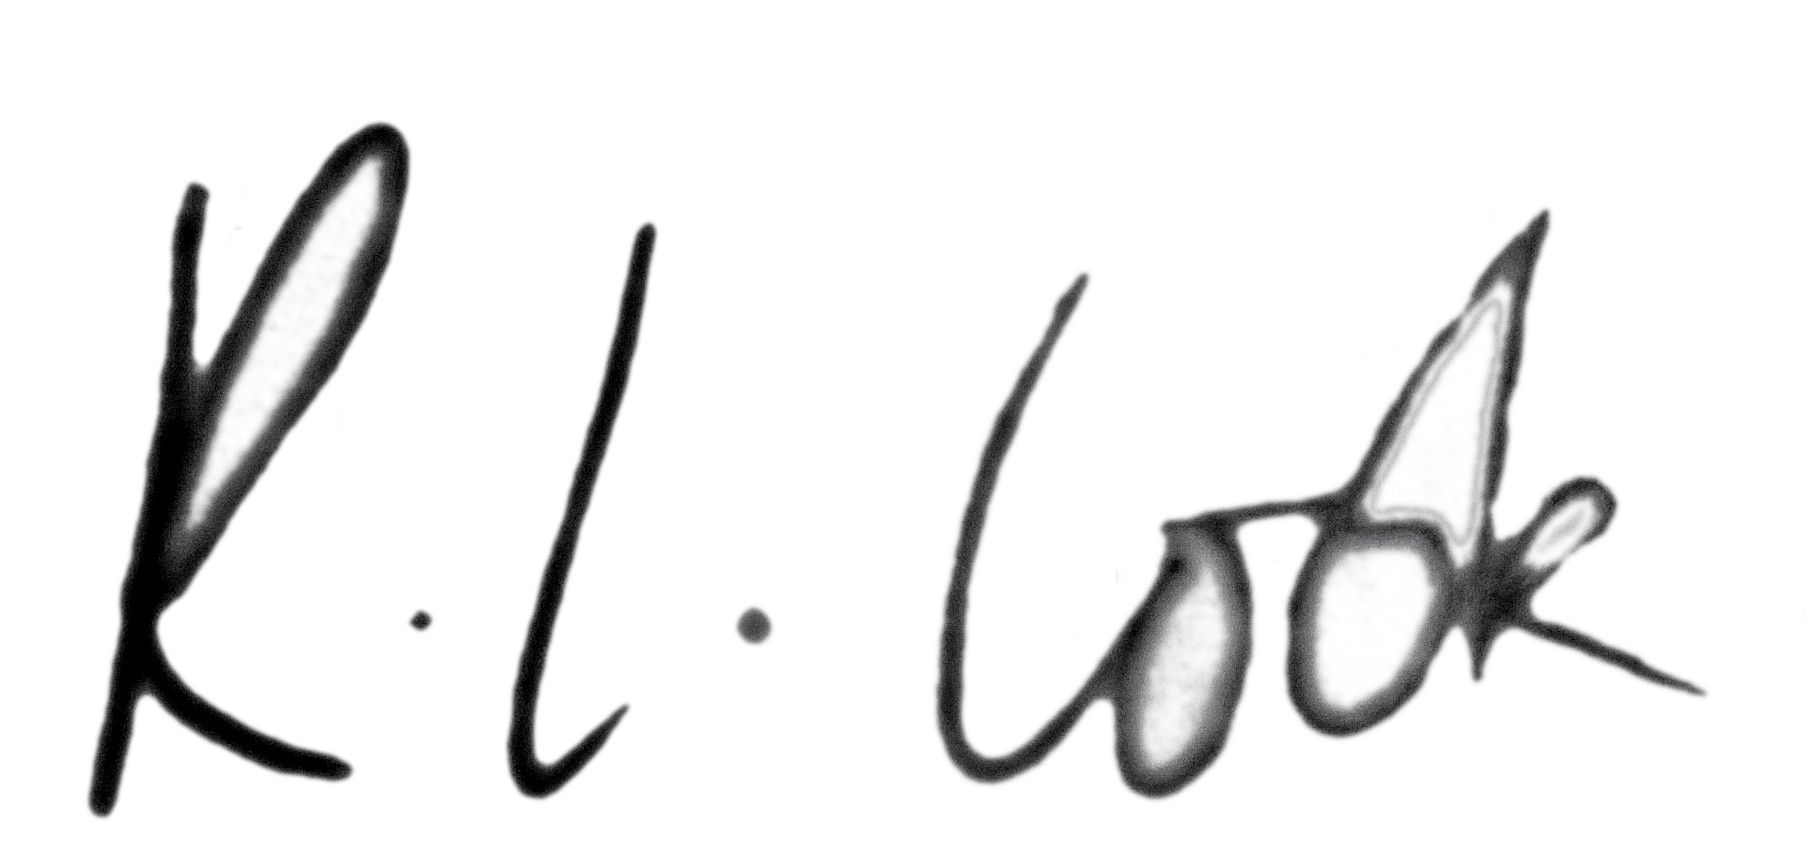 R. L. Cook